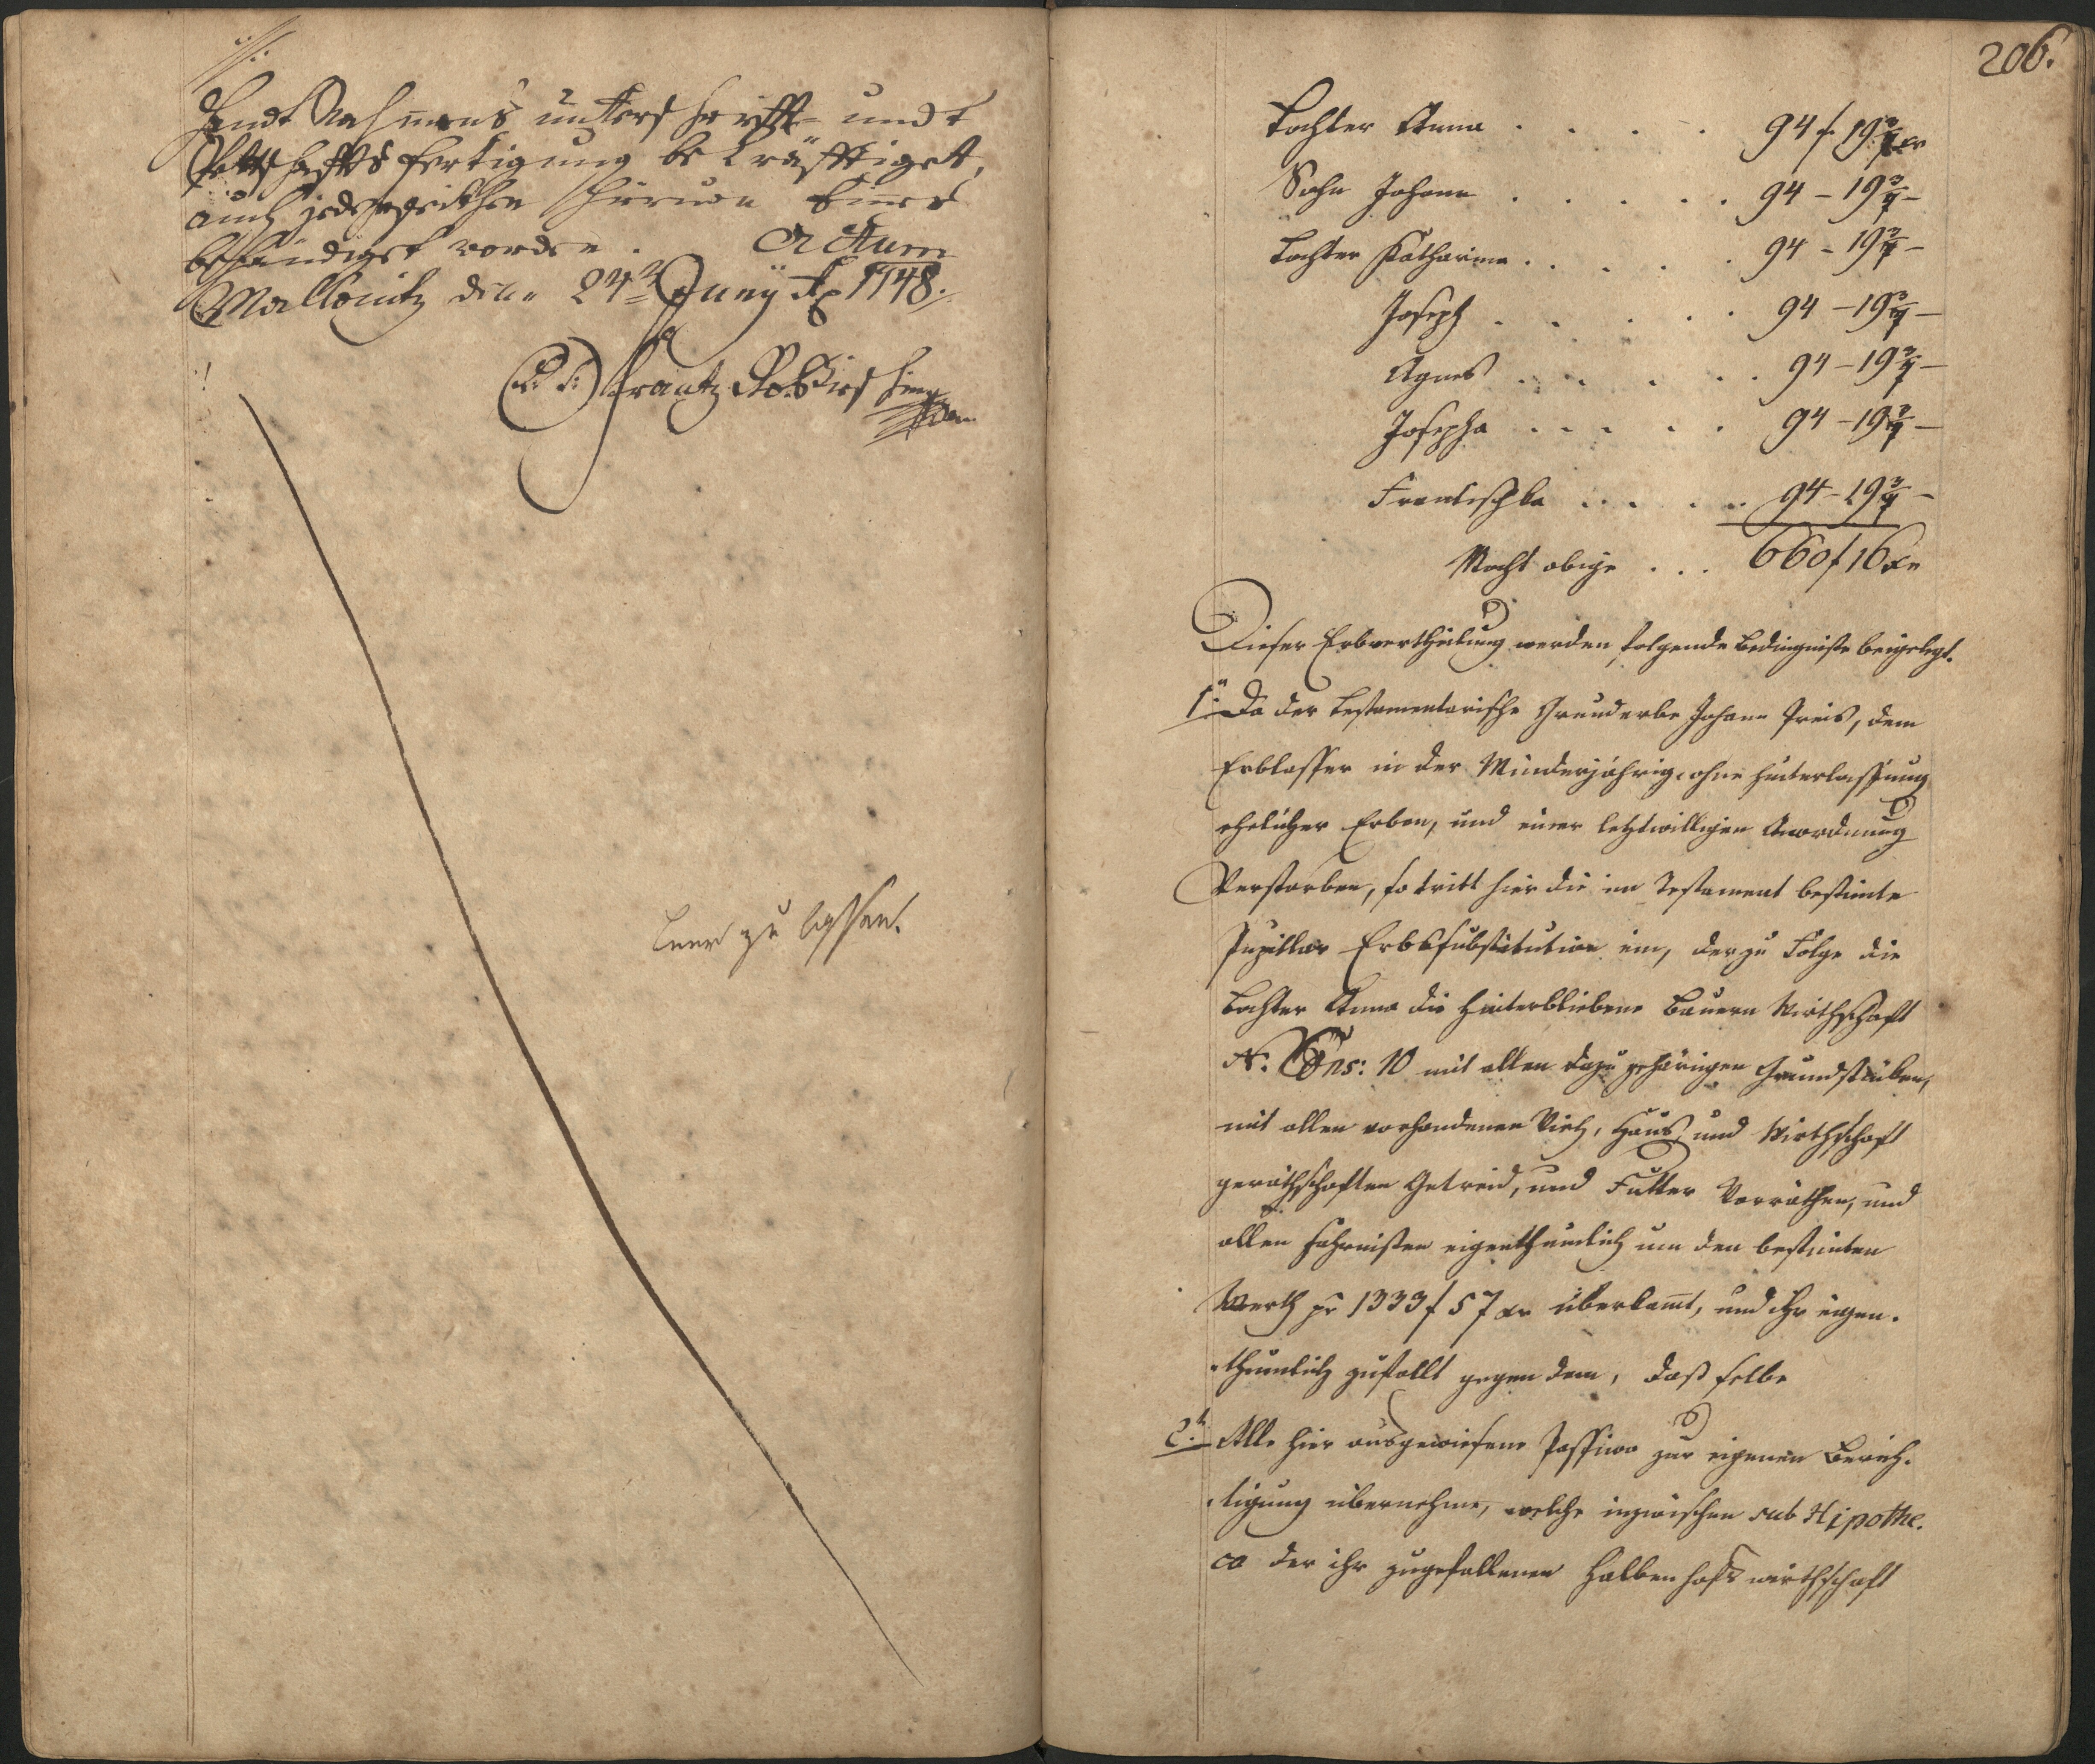 handt Nahmens unterschrifft- undt
Pettschaffts fertigung bekräfftiget,
auch jedwegeithen hiervon Eines
behändiget worden. Actum
Mallonitz den 24 Juny Ao 1748.
(L: S:) Frantz Rob
Leer zu lassen.
206.
Tochter Anna . . . . 94 f 19 3/7 xr
Sohn Johann . . . . . 94 - 19 3/7 -
Tochter Katharina . . . . . 94 - 19 3/7 -
Joseph . . . . . 94 - 19 3/7 -
Agnes . . . . . 94 - 19 3/7 -
Josepha . . . . . 94 - 19 3/7 -
Frantischka . . . . . 94 - 19 3/7 -
Macht obige . . . 660 f 16 xr
Dieser Erbvertheilung werden folgende Bedingniße beigelegt.
1tn Da der Testamentarische Grunderbe Johann Preis, dem
Erblasser in der Minderjährig. ohne Hinterlassung
ehelicher Erben, und einer letztwilligen Anordnung
Verstorben, so tritt hier die im Testament bestimte
Pupillar Erbssubstitution ein, derzu Folge die
Tochter Anna die Hinterbliebene Bauern Wirthschaft
N. Cons: 10 mit allen dazu gehörigen Grundstüken,
mit allen vorhandenen Vieh, Haus und Wirthschaft
geräthschaften Getreid, und Futter Vorräthen, und
allen Fahrnißen eigenthumlich um den bestimten
Werth pr 1333 f 57 xr überkamt, und ihr eigen-
-thumlich zufallt gegen dem, daß selbe
2t. Alle hier ausgewiesene Passiva zur eigenen Berich-
-tigung übernehme, welche inzwischen sub Hipothe-
ca der ihr zugefallenen Halbenhofswirthschaft